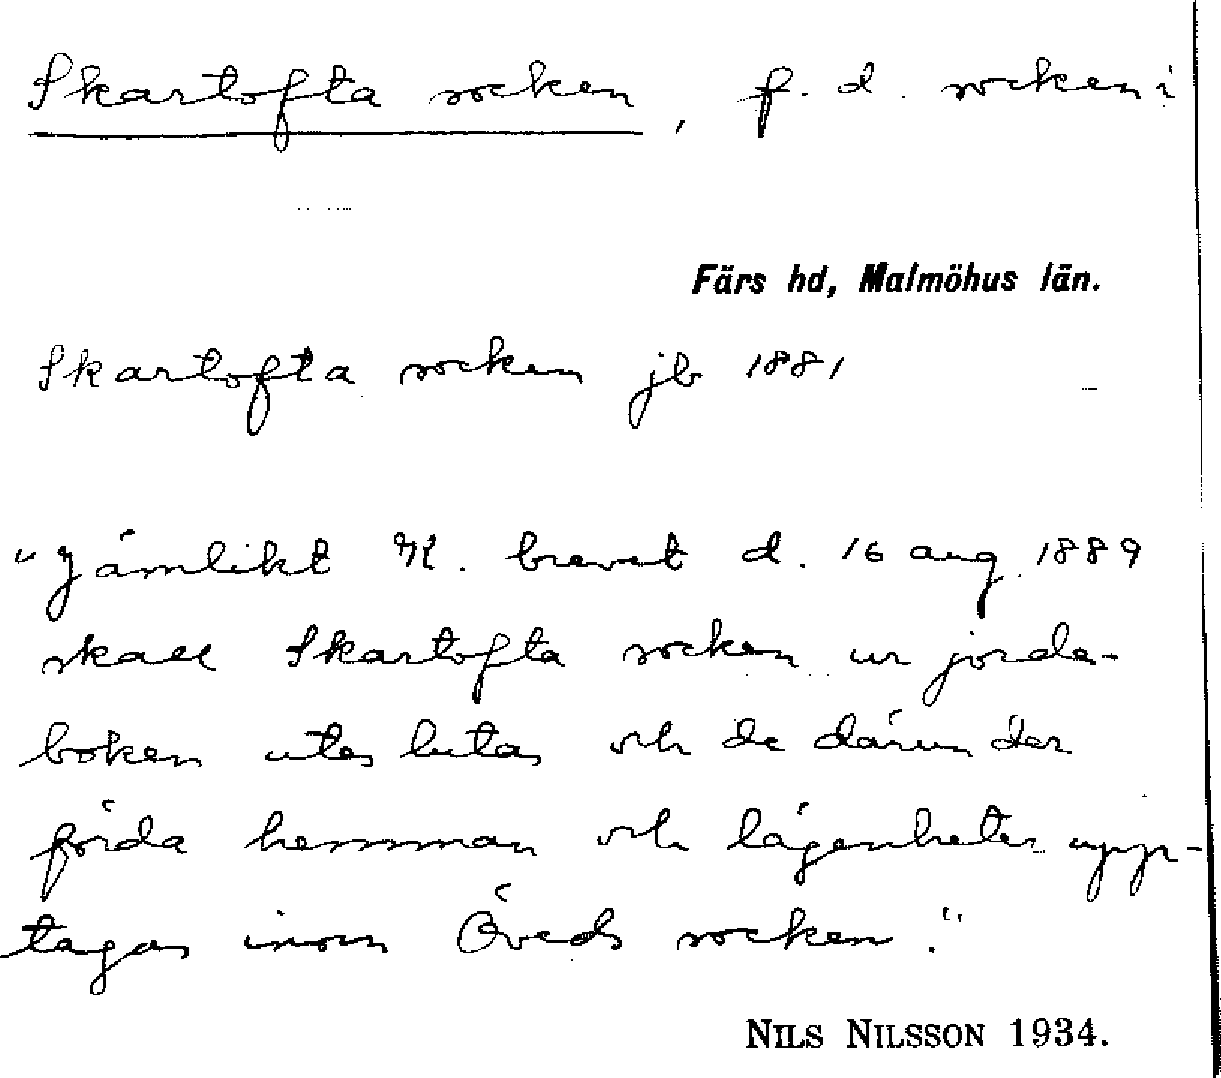 Skartofta socken, f. d. socken i
Färs hd, Malmöhus län.
Skartofta socken jb 1881
"Jämlikt K. brevet d. 16 aug. 1889
skall Skartofta socken ur jorde-
boken uteslutas och de därunder
förda hemman och lägenheter upp-
tagas inom Öveds socken."
NILS NILSSON 1934.